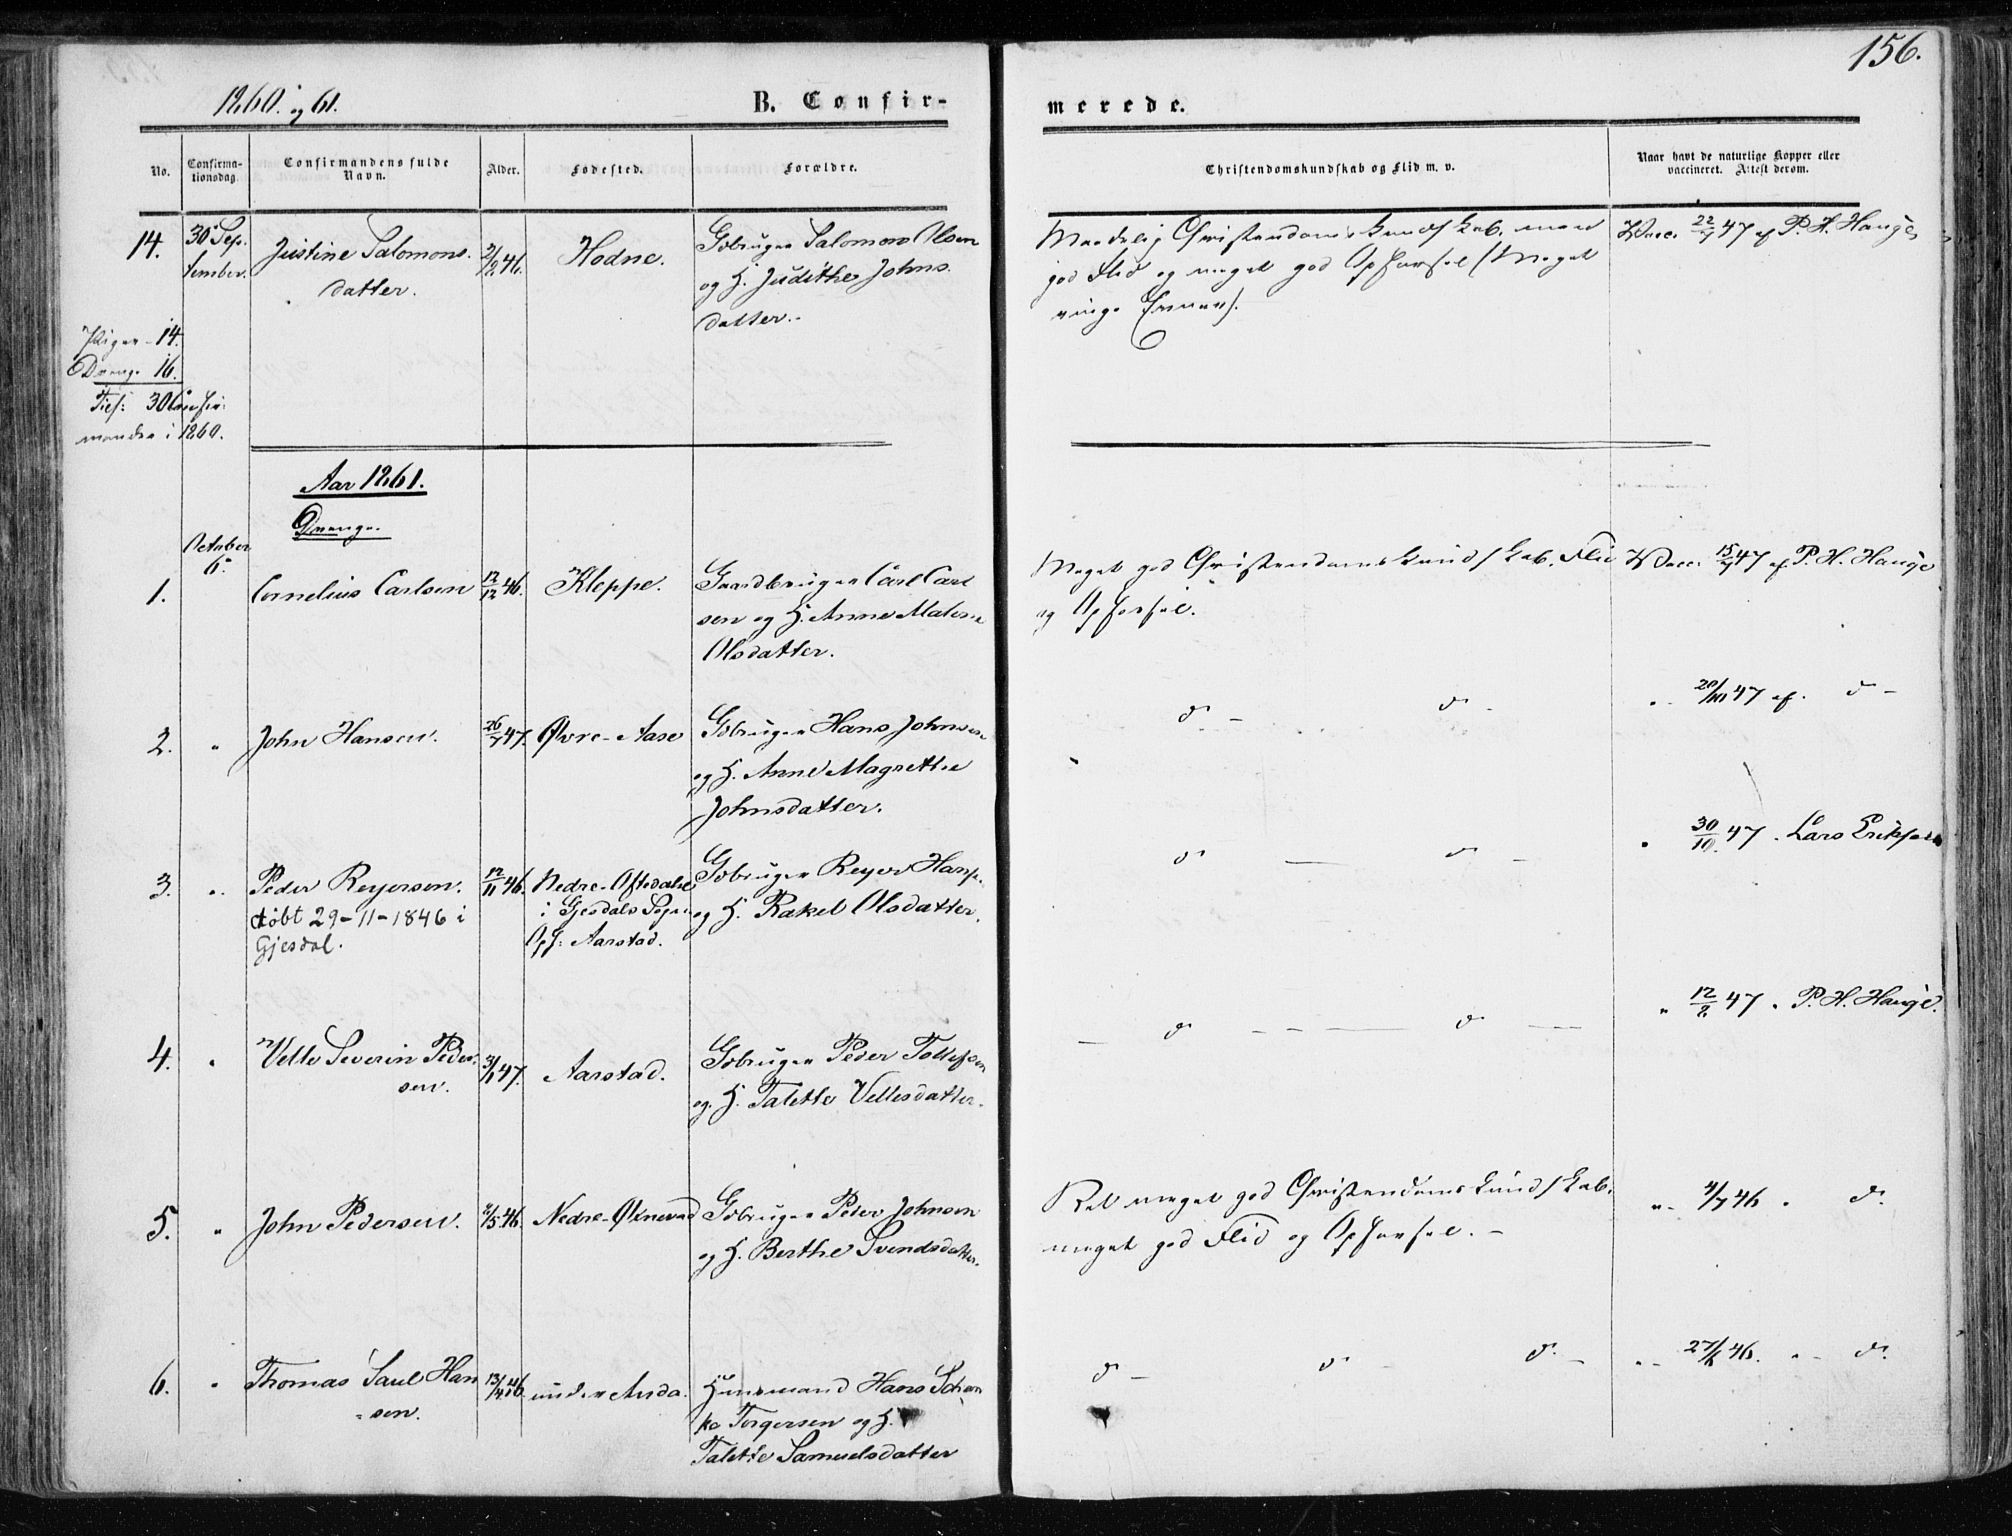 156.
1860. og 61.
B. Confir-
merede.
No.
Confirma-
tionsdag.
Confirmandens fulde
Navn.
Alder.
Fødested.
Forældre.
Christendomskundskab og Flid m. v.
Naar havt de naturlige Kopper eller
vaccineret. Attest derom.
14.
30 Sep-
tember.
Justine Salomons-
datter.
2/2 46.
Hodne.
Gbruger Salomon Olsen
og H. Judithe Johns-
datter.
Maadelig Christendomskundskab, men
god Flid og meget god Opførsel (Meget
ringe Evner).
Vacc. 22/7 47 af P. H. Hauge
Piger 14.
Drenge 16.
Tils: 30 Confir-
mander i 1860.
Aar 1861.
Drenge.
October
6.
1.
Cornelius Carlsen
12/12 46.
Kleppe.
Gaardbruger Carl Carl
sen og H. Anne Malene
Olsdatter.
Meget god Christendomskundskab, Flid
og Opførsel.
Vacc. 15/7 47 af P. H. Hauge
2.
"
John Hansen.
26/7 47.
Øvre-Aase
Gbruger Hans Johnsen
og H. Anne Magrethe
Johnsdatter.
d° - d° -
" 20/10 47 af. d° -
3.
"
Peder Reyersen.
døbt 29-11-1846 i
Gjesdal.
12/11 46.
Nedre-Oftedahl
i Gjesdals Sogn
Opf: Aarstad.
Gbruger Reyer Hans.
og H. Rakel Olsdatter.
d° — d° -
" 30/10 47 " Lars Eriksen
4.
"
Velle Severin Peder-
sen.
3/1 47.
Aarstad.
Gbruger Peder Tollefsen
og H. Talette Vellesdatter.
- d° - - — d° —
" 12/8 47 " P. H. Hauge.
5.
"
John Pedersen.
2/5 46.
Nedre-Øxnevad
Gbruger Peder Johnsen
og H. Berthe Svendsdatter.
Ret meget god Christendomskundskab,
meget god Flid og Opførsel. -
" 4/7 46 " d°.
6.
"
Thomas Saul Han
sen.
13/4 46
under Anda.
Huusmand Hans Schan
ke Torgersen og H.
Talette Samuelsdatter
d° - d° - d° -
" 27/6 46. " - d°.